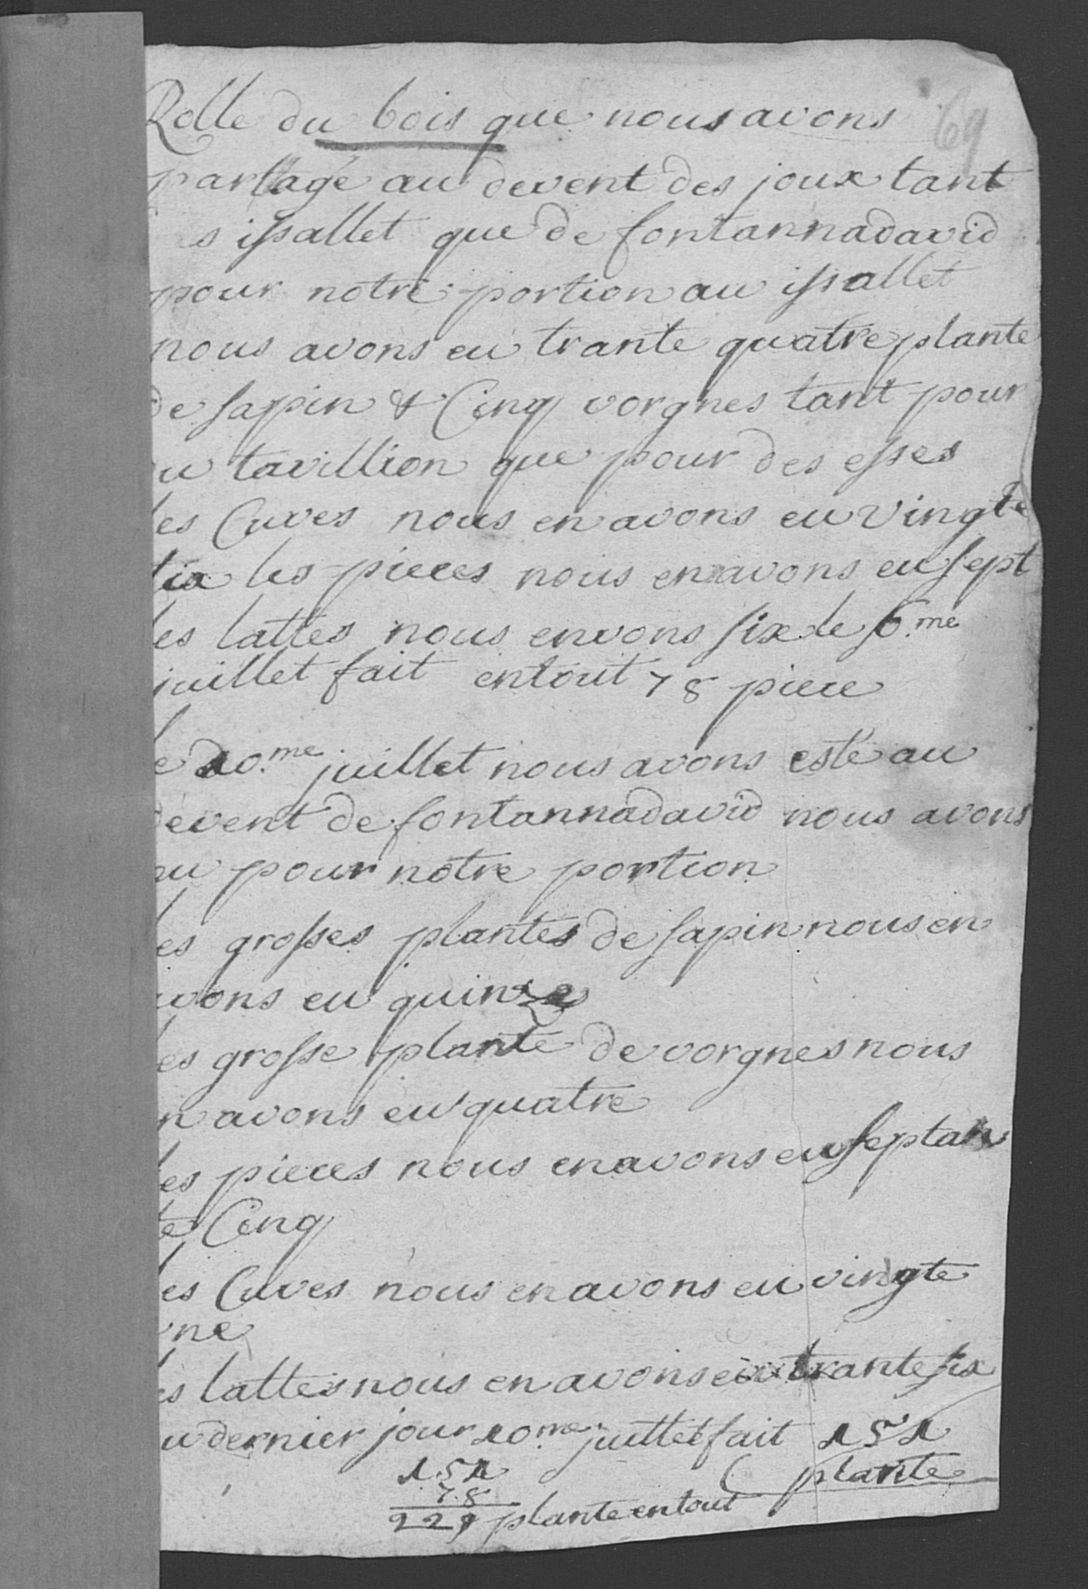 Rolle du bois que nous avons
69
partagé au devent des joux tant
s issallet que de fontannadavid
pour notre portion au issallet
nous avons eu trante quatre plante
de sapin & Cinq vorgnes tant pour
u tavillion que pour des esses
les Cuves nous en avons eu vingte
six les pieces nous en avons eu sept
les lattes nous envons six le 6.me
juillet fait entout 78 piece
le 10.me juillet nous avons esté au
devent de fontannadavid nous avons
u pour notre portion
les grosses plantes de sapin nous en
avons eu quinze
les grosse plante de vorgnes nous
n avons eu quatre
les pieces nous en avons eu septan
te Cinq
les Cuves nous en avons eu vingte
une
les lattes nous en avons eu trante six
u dernier jour 10.me juillet fait 151
plante
151
78
229 plante entout